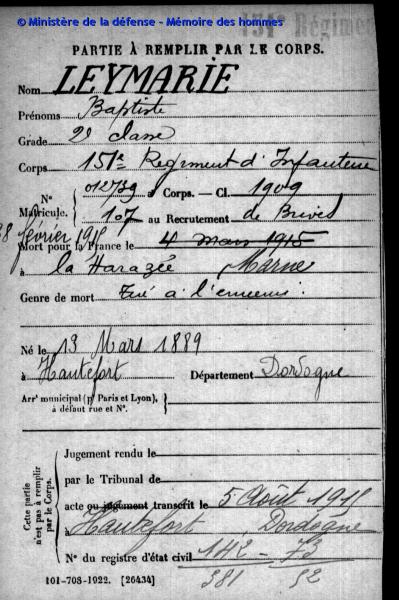 © Ministère de la défense - Mémoire des hommes
151e Régiment
PARTIE À REMPLIR PAR LE CORPS.
Nom LEYMARIE
Prénoms Baptiste
Grade 2e classe
Corps 151e Regiment d'Infanterie
N° 012739 à Corps. — Cl. 1909
Matricule. 107 au Recrutement de Brives
28 février 1915
Mort pour la France le 4 mars 1915
à la Harazée Marne
Genre de mort Tué à l'ennemi.
Né le 13 Mars 1889
à Hautefort Département Dordogne
Arrt municipal (pr Paris et Lyon),
à défaut rue et N°.
Cette partie n'est pas à remplir par le Corps.
Jugement rendu le
par le Tribunal de
acte ou jugement transcrit le 5 Août 1915
à Hautefort, Dordogne
N° du registre d'état civil 142 - 73
381 52
101-708-1922. [26434]